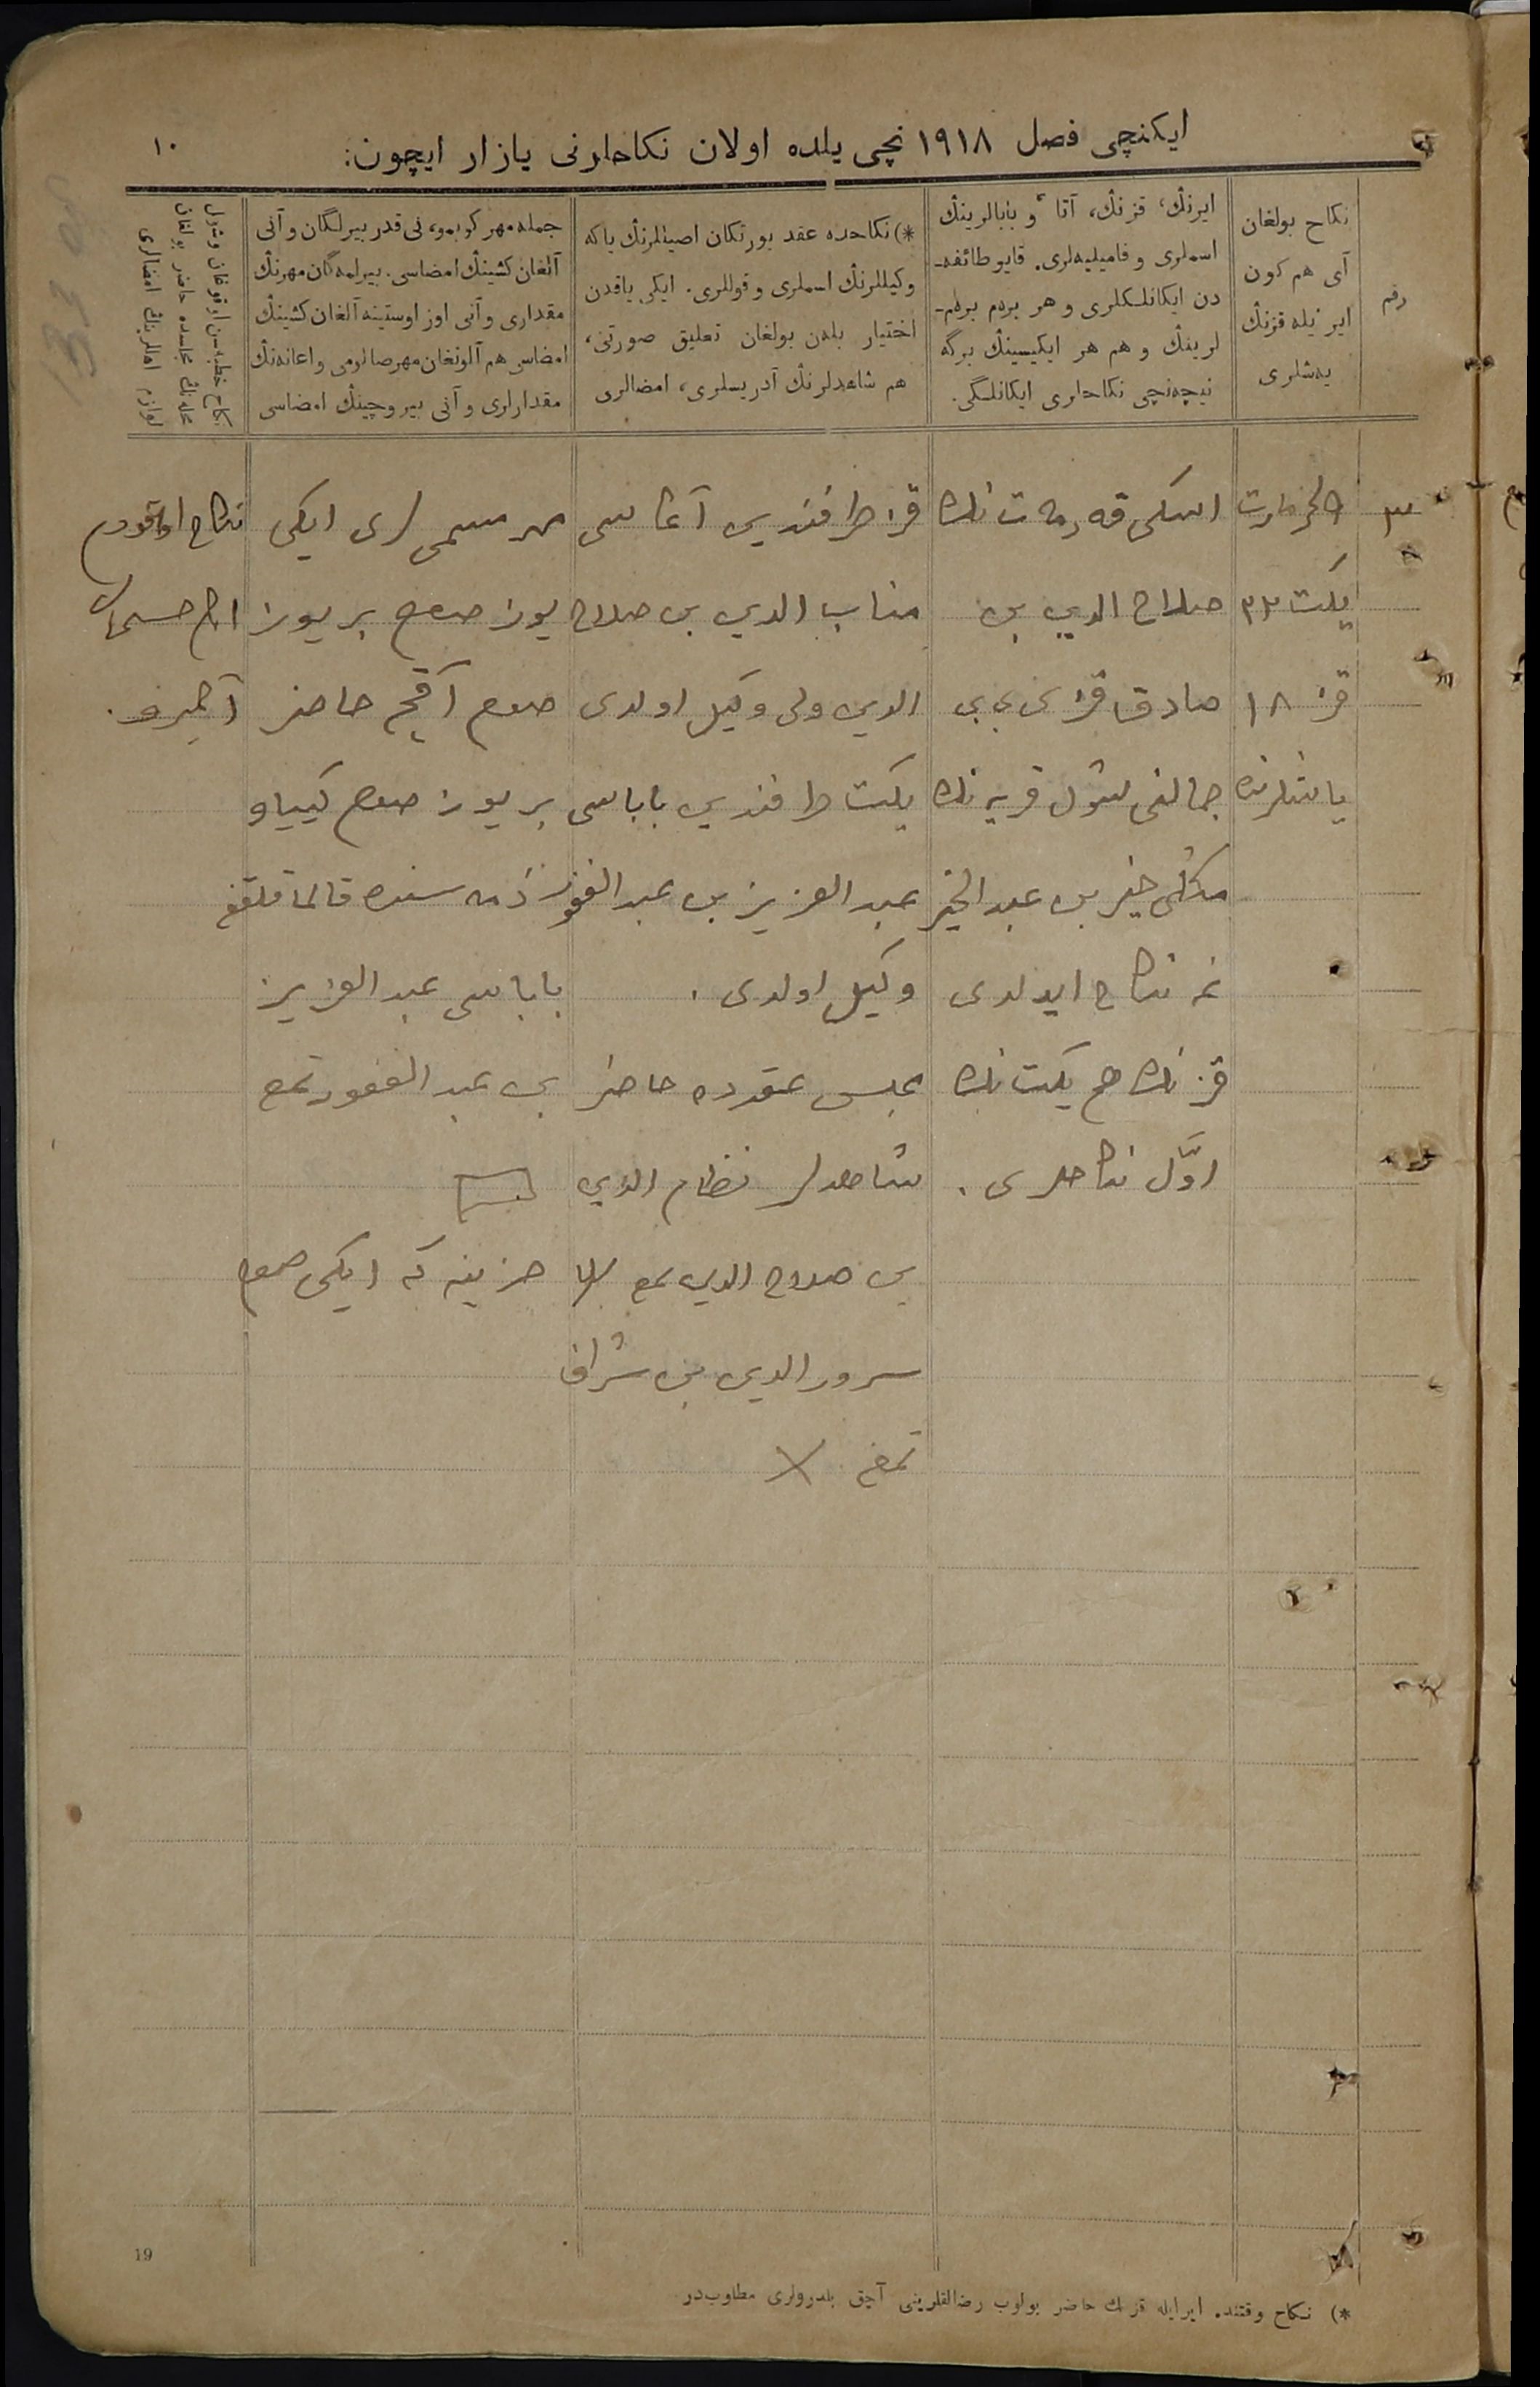 ایکنچی فصل ١٩١٨ نچی یلده اولان نکاحلرنی یازار ایچون:
١٠
رقم
نکاح بولغان
آی هم کون
ایر ایله قزنڭ
یەشلری
ایرنڭ، قزنڭ، آتا و بابالرینڭ
اسملری و فامیلیەلری. قایو طائفه‌ـ
دن ایکانلکلری و هر بردم بردم‌ـ
لرینڭ و هم هر ایکیسینڭ برگه
نیچەنچی نکاحلری ایکانلگی.
*) نکاحده عقد یورتکان اصیللرنڭ یاکه
وکیللرنڭ اسملری و قوللری. ایکی یاقدن
اختیار بلەن بولغان تعلیق صورتی،
هم شاهدلرنڭ آدریسلری، امضالری
جمله مهر کوبمو، نی قدر بیرلگان و آنی
آلغان کشینڭ امضاسی. بیرلمەگان مهرنڭ
مقداری و آنی اوز اوستینه آلغان کشینڭ
امضاسی هم آلونغان مهر صالومی و اعانەنڭ
مقدارلری و آنی بیروچینڭ امضاسی
نکاح خطبەسن اوقوغان و شول
محلەنڭ مجلسده حاضر بولغان
لوازم اهللرینڭ امضالری
٣
مارت
یکت ٣٢
قز ١٨
یاشلرنده
اسکی قه رمه ت نڭ
صلاح الدین بن
صادق قزی بی بی
جمالنی شول قریه نڭ
منکلی خیر بن عبد الخیر
غه نکاح ایدلدی
قز نڭ هم یکت نڭ
اوّل نکاحلری .
قز طرفندین آغاسی
مناب الدین بن صلاح
الدین ولی وکیل اولدی
یکت طرفندین باباسی
عبد العزیز بن عبد الغفور
وکیل اولدی .
مجلس عقدده حاضر
شاهدلر نظام الدین
بن صلاح الدین تمغ
سرور الدین بن شراف
تمغ X
مهر مسمی لری ایکی
یوز صوم بر یوز
صوم آقچه حاضر
بر یوز صوم کییاو
ذمه سنده قالماقلقغه
باباسی عبد العزیز
بن عبد الغفور تمغ
خزینه گه ایکی صوم
نکاح اوقودم
امام
19
*) نکاح وقتنده ایر ایله قزنڭ حاضر بولوب رضالقلرینی آچق بلدرولری مطلوب‌در